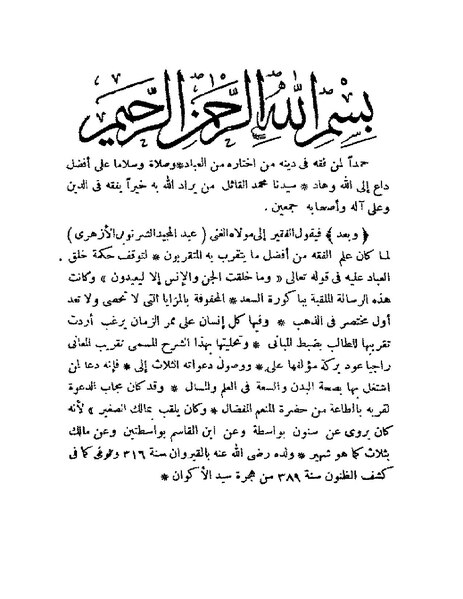 بسم الله الرحمن الرحيم
حمداً لمن فقه فى دينه من اختاره من العباد*وصلاة وسلاما على أفضل
داع إلى الله وهاد * سيدنا محمد القائل من يراد الله به خيراً يفقه فى الدين
وعلى آله وأصحابه جمعين .
﴿ وبعد ﴾ فيقول الفقير إلى مولاه الغنى ( عبد المجيد الشرنوبى الأزهرى )
لما كان علم الفقه من أفضل ما يتقرب به المتقربون * لتوقف حكمة خلق
العباد عليه فى قوله تعالى « وما خلقت الجن والإنس إلا ليعبدون » وكانت
هذه الرسالة الملقبة بباكورة السعد * المحفوفة بالمزايا التى لا تحصى ولا تعد
أول مختصر فى المذهب * وفيها كل إنسان على ممر الزمان يرغب أردت
تقريبها للطالب بضبط المبانى * وتحليتها بهذا الشرح المسمى تقريب المعانى
راجيا عود بركة مؤلفها على * ووصول دعواته الثلاث إلى * فإنه دعا لمن
اشتغل بها بصحة البدن والسعة فى العلم والمال * وقد كان مجاب الدعوة
لقربه بالطاعة من حضرة المنعم المفضال * وكان يلقب بمالك الصغير » لأنه
كان يروى عن سحنون بواسطة وعن ابن القاسم بواسطتين وعن مالك
بثلاث كما هو شهير * ولد رضى الله عنه بالقيروان سنة ٣١٦ وتوفى كما فى
كشف الظنون سنة ٣٨٩ من هجرة سيد الأكوان *